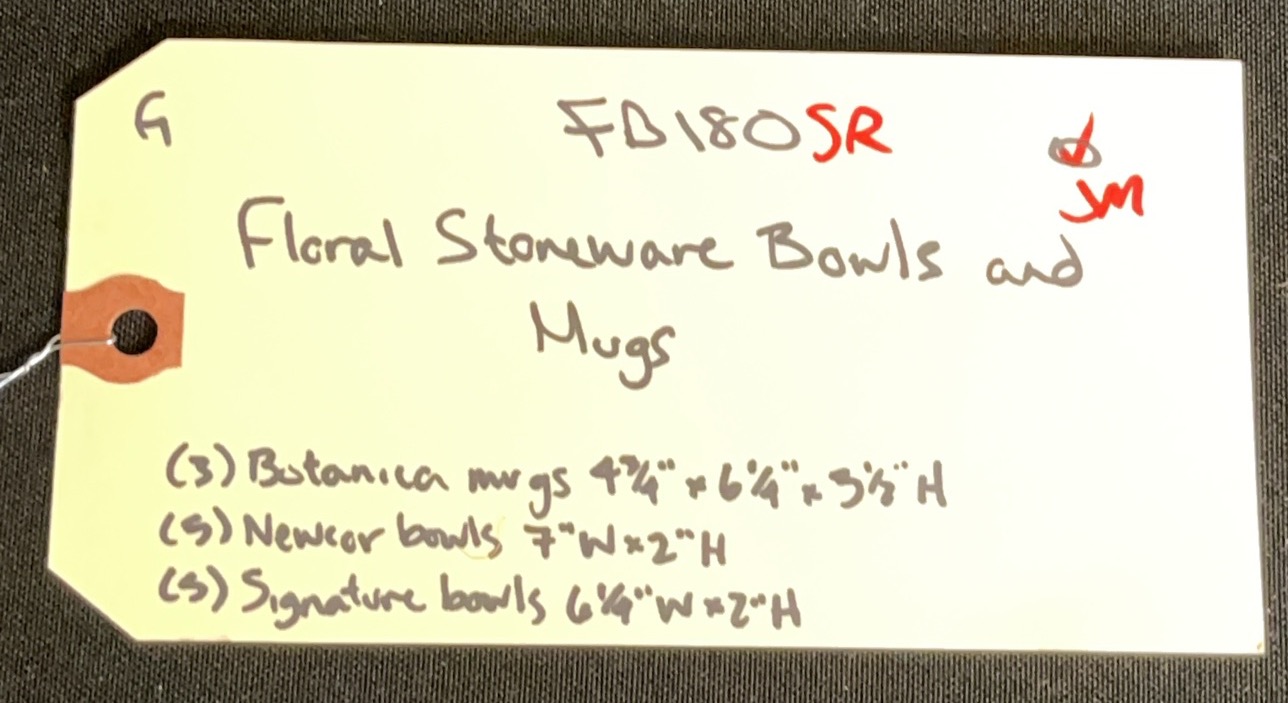 G
FB180SR
JM
Floral Stoneware Bowls and
Mugs
(3) Botanica mugs 4 3/4" x 6 1/4" x 3 1/2" H
(5) Newcor bowls 7" W x 2" H
(5) Signature bowls 6 1/4" W x 2" H